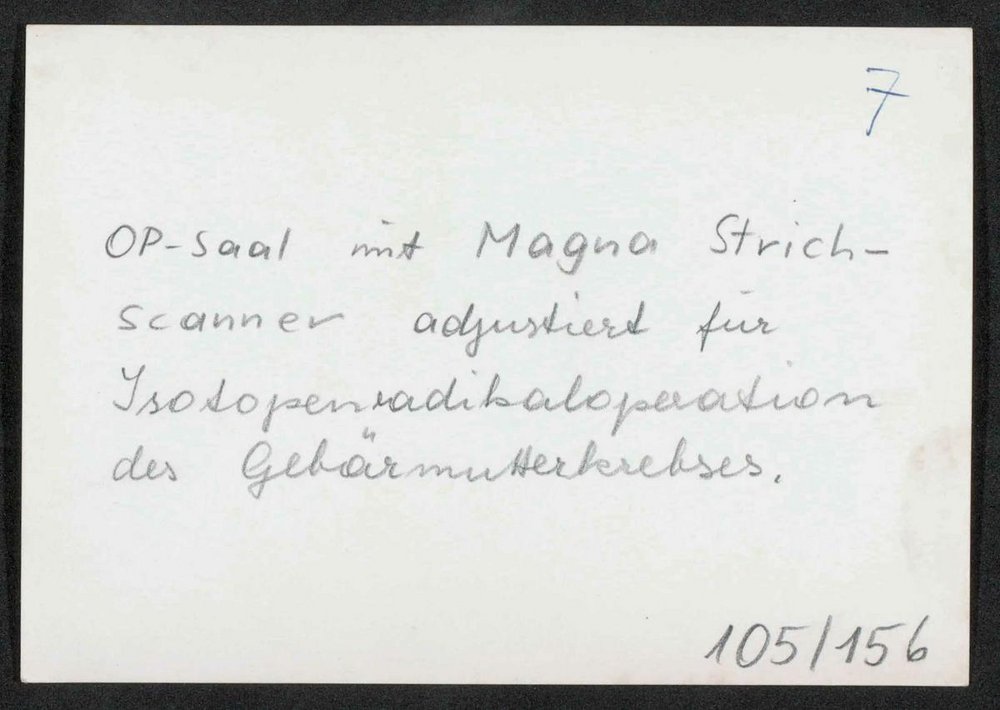 7
OP-Saal mit Magna Strich-
scanner adjustiert für
Isotopenradikaloperation
des Gebärmutterkrebses.
105/156